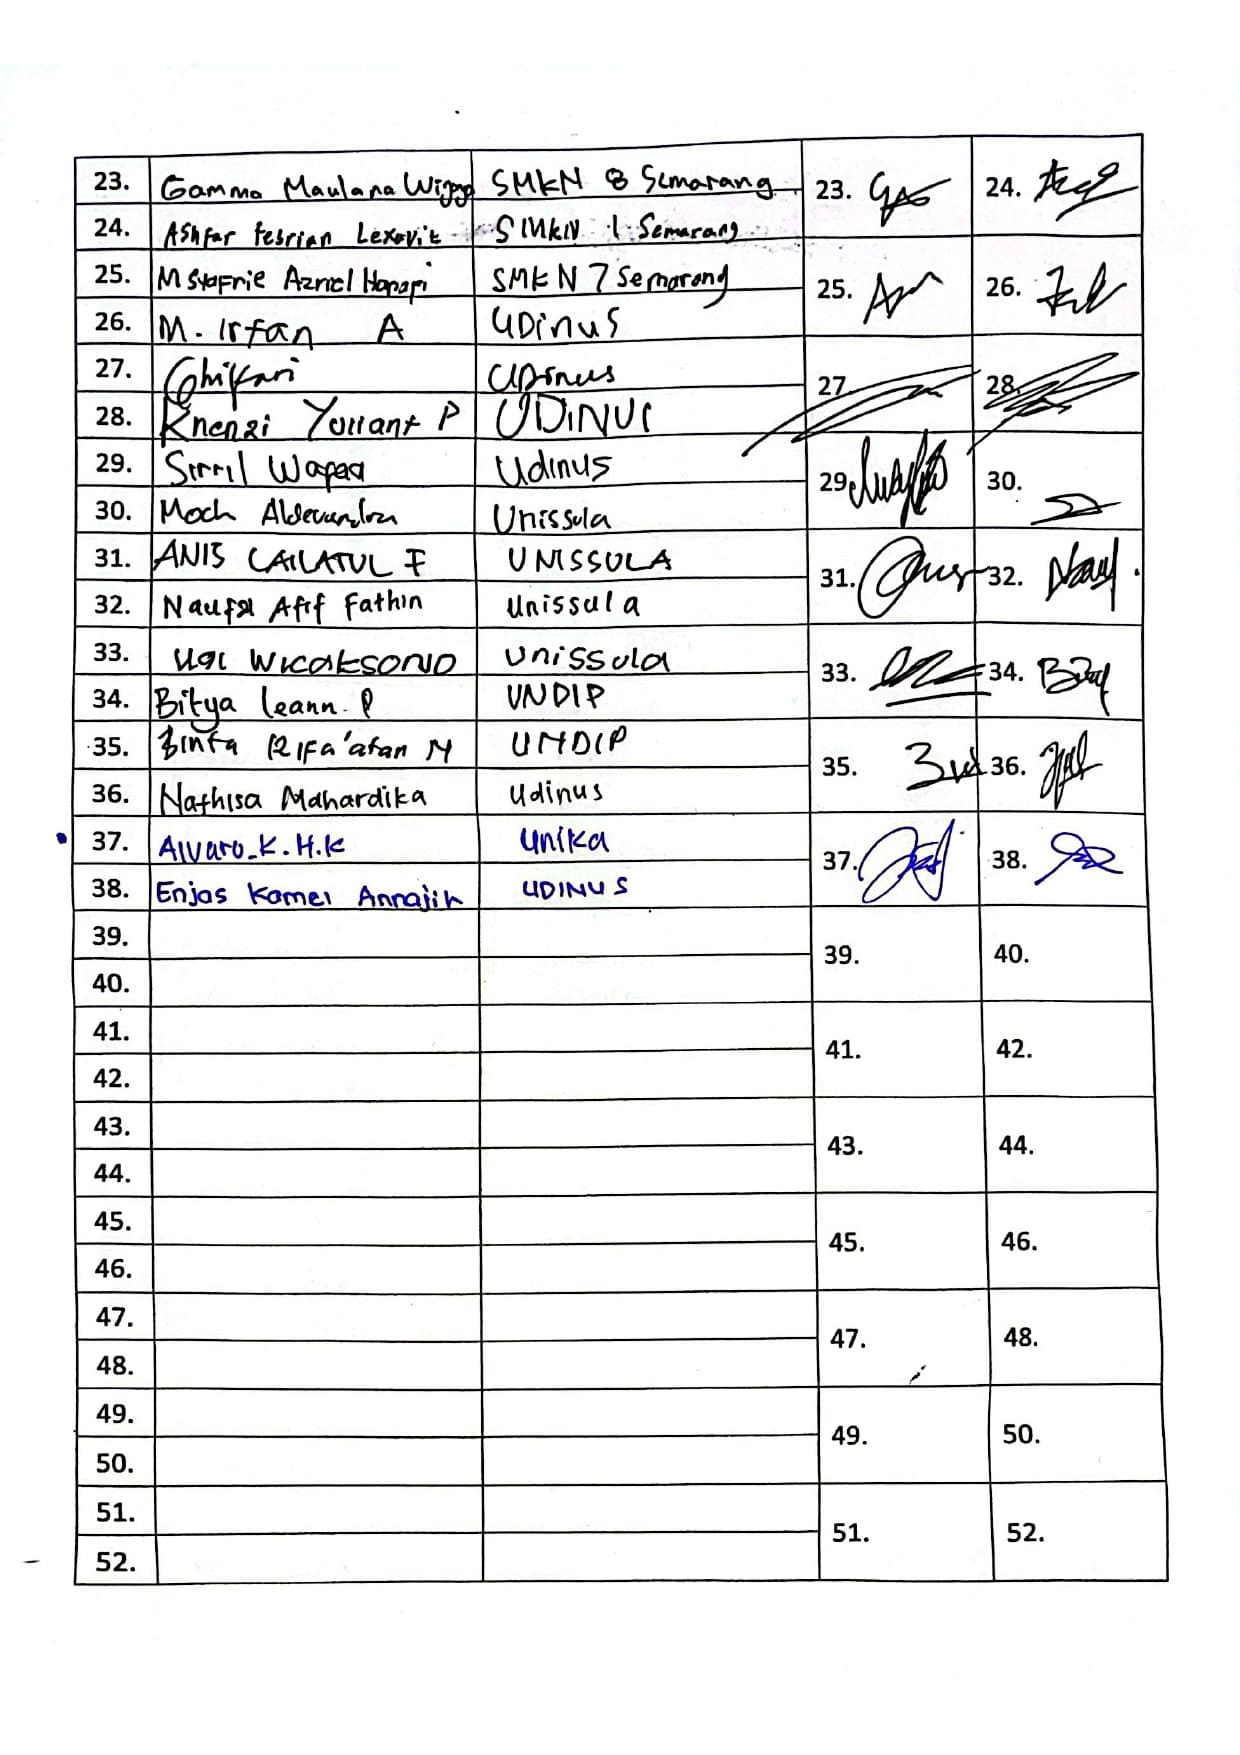 23. Gamma Maulana Wijaya SMKN 8 Semarang 23. 24.
24. Ashfar Febrian Lexavit SMKN 1 Semarang
25. M Syafrie Azriel Hanapi SMKN 7 Semarang 25. 26.
26. M. Irfan A UDINUS
27. Ghiffari UDINUS 27. 28.
28. Khenzi Yurrant P UDINUS
29. Sirril Wafaa Udinus 29. 30.
30. Moch Aldevandra Unissula
31. ANIS CAILATUL F UNISSULA 31. 32.
32. Naufal Afif Fathin Unissula
33. WICAKSONO Unissula 33. 34.
34. Bitya leann. P UNDIP
35. Zinta Rifa'atan N UNDIP 35. 36.
36. Nathisa Mahardika Udinus
37. Alvaro.K.H.K Unika 37. 38.
38. Enjas Komei Annajih UDINUS
39. 39. 40.
40.
41. 41. 42.
42.
43. 43. 44.
44.
45. 45. 46.
46.
47. 47. 48.
48.
49. 49. 50.
50.
51. 51. 52.
52.